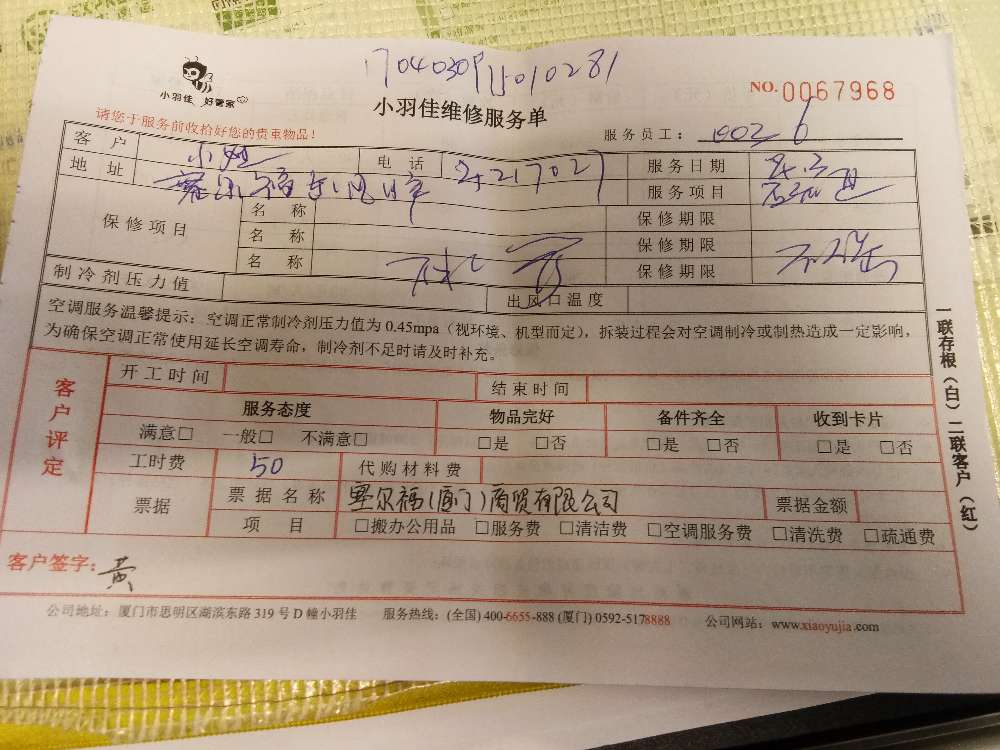 17040309115010281
小羽佳 好管家
小羽佳维修服务单
NO. 0067968
请您于服务前收拾好您的贵重物品！
服务员工：
客户 电话 服务日期
地址 服务项目
保修项目 名称 保修期限
名称 保修期限
名称 保修期限
制冷剂压力值 出风口温度
空调服务温馨提示：空调正常制冷剂压力值为 0.45mpa（视环境、机型而定），拆装过程会对空调制冷或制热造成一定影响，
为确保空调正常使用延长空调寿命，制冷剂不足时请及时补充。
客户评定
开工时间 结束时间
服务态度 物品完好 备件齐全 收到卡片
满意□ 一般□ 不满意□ □是 □否 □是 □否 □是 □否
工时费 50 代购材料费
票据 票据名称 塞尔福(厦门)商贸有限公司 票据金额
项目 □搬办公用品 □服务费 □清洁费 □空调服务费 □清洗费 □疏通费
客户签字：黄
公司地址：厦门市思明区湖滨东路 319 号 D 幢小羽佳 服务热线：(全国) 400-6655-888 (厦门) 0592-5178888 公司网站：www.xiaoyujia.com
一联存根（白）二联客户（红）